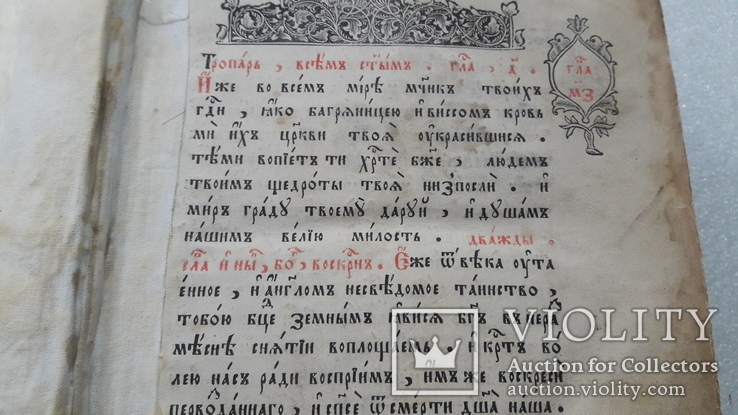 Тропарь, всѣмъ ст҃ымъ. гла, д҃.
И҆́же во всемъ мїрѣ мч҃нкъ твоихъ
гд҃и, ꙗ҆́ко багряницею и҆ виссомъ кровь
ми и҆́хъ цр҃кви твоѧ̀ ᲂу҆красившисѧ.
тѣми вопїетъ ти хр҃те бж҃е, людемъ
твоимъ щедроты твоѧ̀ низпосли. и҆
миръ граду твоему даруй, и҆ душамъ
нашимъ велїю милость. дважды.
сла и҆ ны҃, бо҃, воскрн҃. Е҆́же ѿ вѣка ᲂу҆та
енное, и҆ а҆́нгломъ несвѣдомое таинство,
тобою бц҃е земнымъ ꙗ҆вися бг҃ъ в̾ нера
мѣснѣ снѧтїи воплощаемь, и҆ кр҃тъ во
лею насъ ради воспрїимъ, имъ же воскреси
первоꙁданнаго, и҆ сп҃се ѿ смерти дш҃а наша.
гла
мз
VIOLITY
Auction for Collectors
auction.violity.com